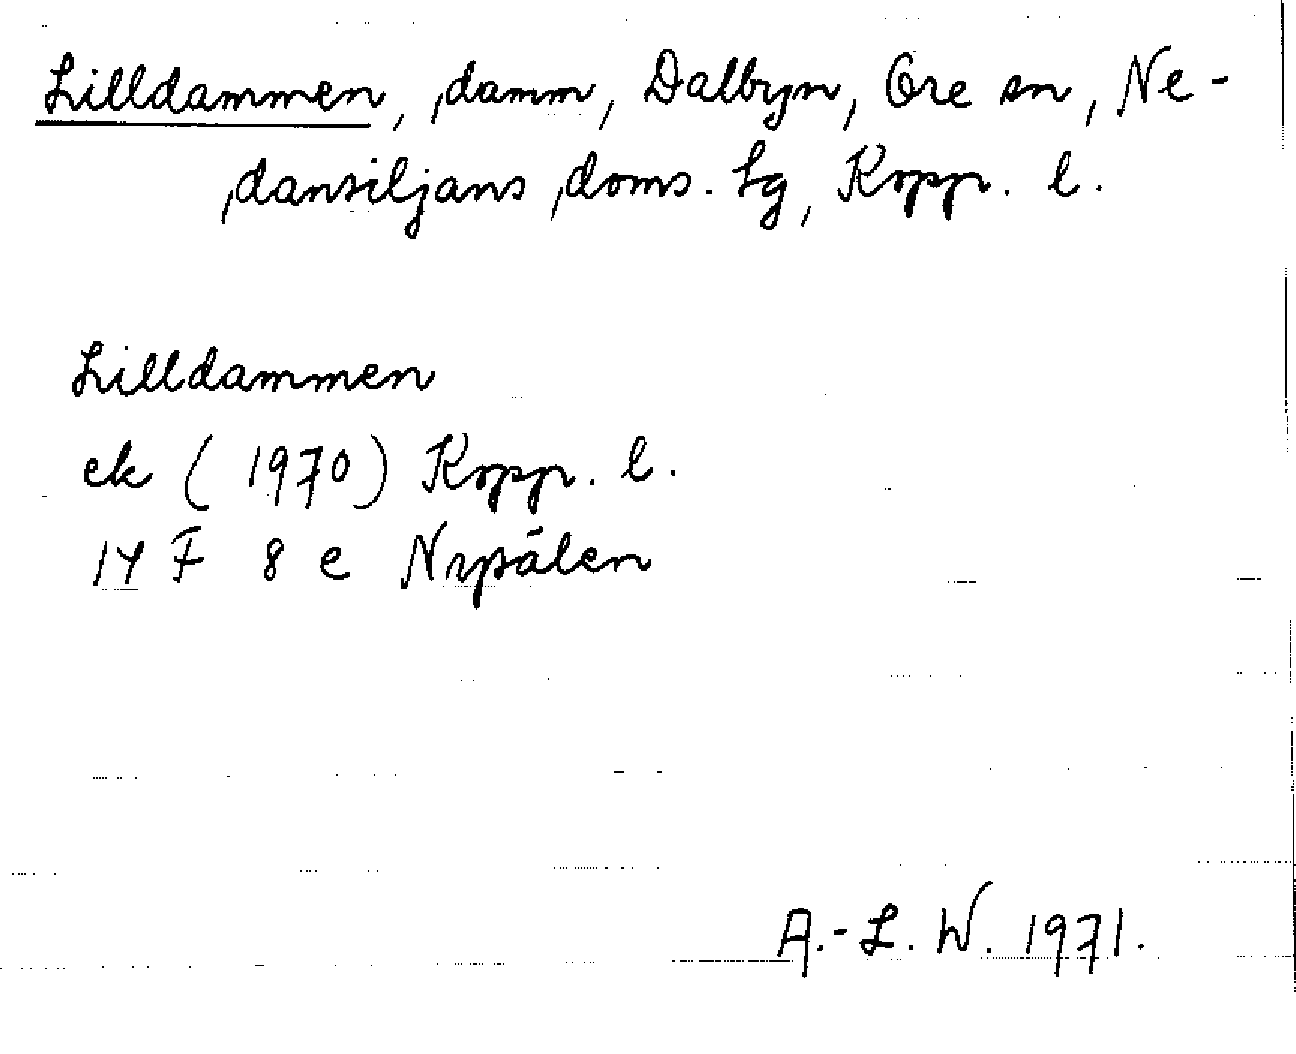 Lilldammen, damm, Dalbyn, Ore sn, Ne-
dansiljans doms. tg, Kopp. l.
Lilldammen
ek (1970) Kopp. l.
14 F 8 e Nysålen
A.-L. W. 1971.